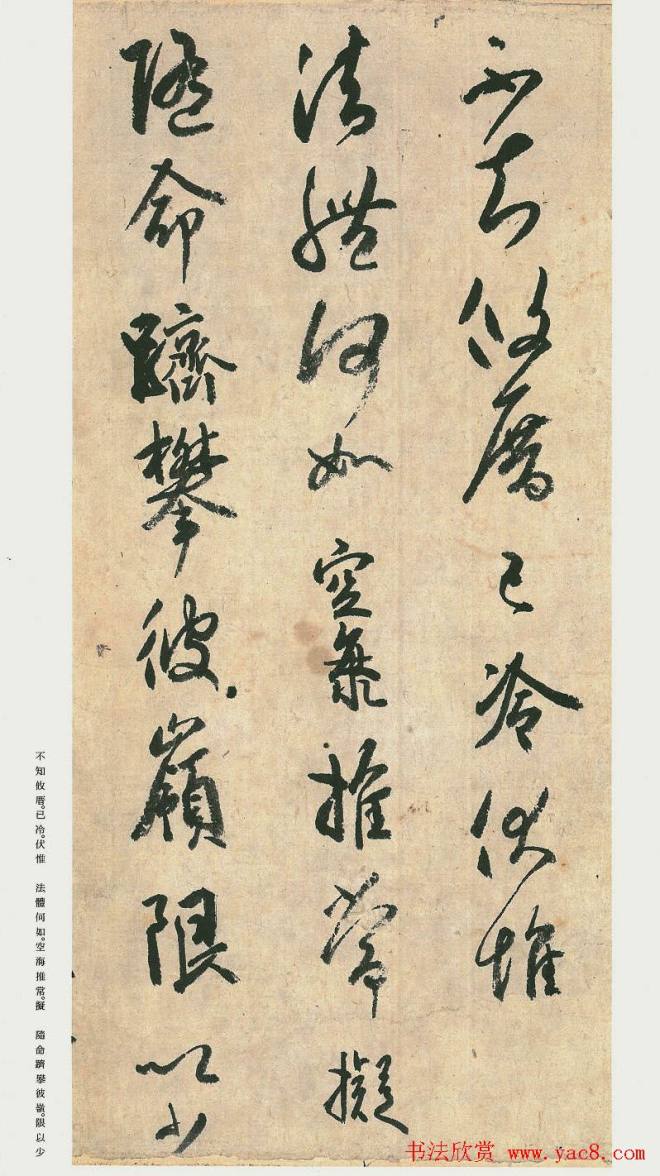 不知攸厝已冷伏惟
法體何如空海推常擬
隨命躋攀彼嶺限以少
不知攸厝。已冷。伏惟　法體何如。空海推常。擬　隨命躋攀彼嶺。限以少
书法欣赏 www.yac8.com